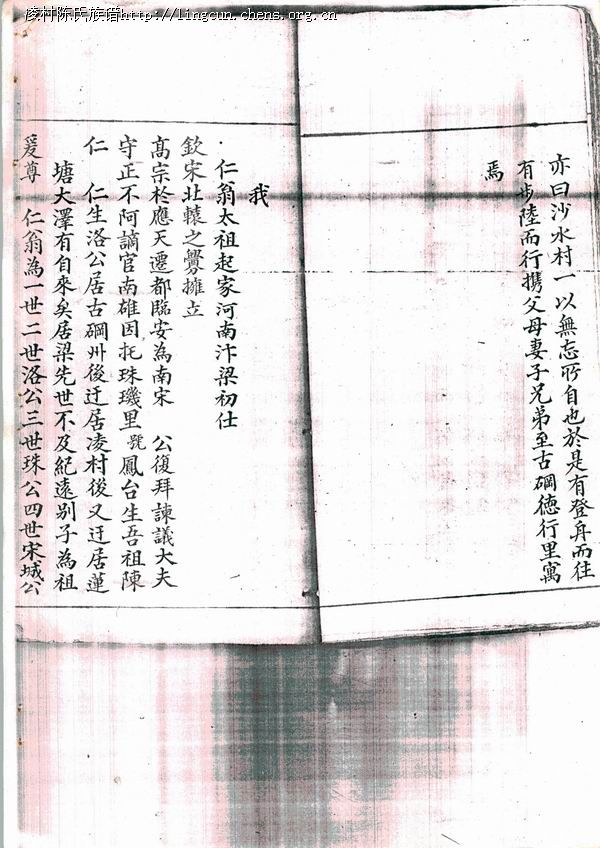 凌村陈氏族谱http://lingcun.chens.org.cn
亦曰沙水村一以無忘所自也於是有登舟而往
有步陸而行携父母妻子兄弟至古岡德行里寓
焉
我
仁翁太祖起家河南汴梁初仕
欽宋北轅之釁擁立
髙宗於應天遷都臨安為南宋 公復拜諫議大夫
守正不阿謫官南雄因抵珠璣里號鳳台生吾祖陳
仁 仁生洛公居古岡州後迁居凌村後又迁居蓮
塘大澤有自來矣居梁先世不及紀遠别子為祖
爰尊 仁翁為一世二世洛公三世珠公四世宋城公